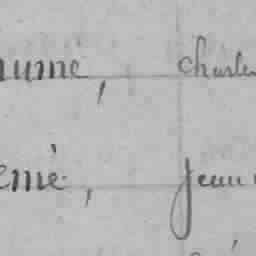 numé, Charles
emé, Jean